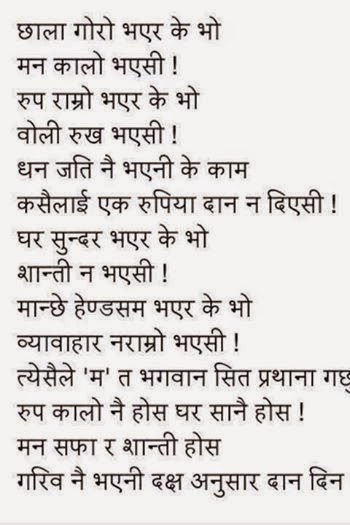 छाला गोरो भएर के भो
मन कालो भएसी !
रुप राम्रो भएर के भो
वोली रुख भएसी !
धन जति नै भएनी के काम
कसैलाई एक रुपिया दान न दिएसी !
घर सुन्दर भएर के भो
शान्ती न भएसी !
मान्छे हेण्डसम भएर के भो
व्यावाहार नराम्रो भएसी !
त्येसैले 'म' त भगवान सित प्रथाना गछु
रुप कालो नै होस घर सानै होस !
मन सफा र शान्ती होस
गरिव नै भएनी दक्ष अनुसार दान दिन